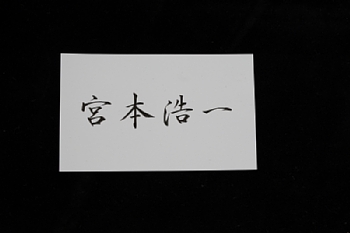 宮本浩一